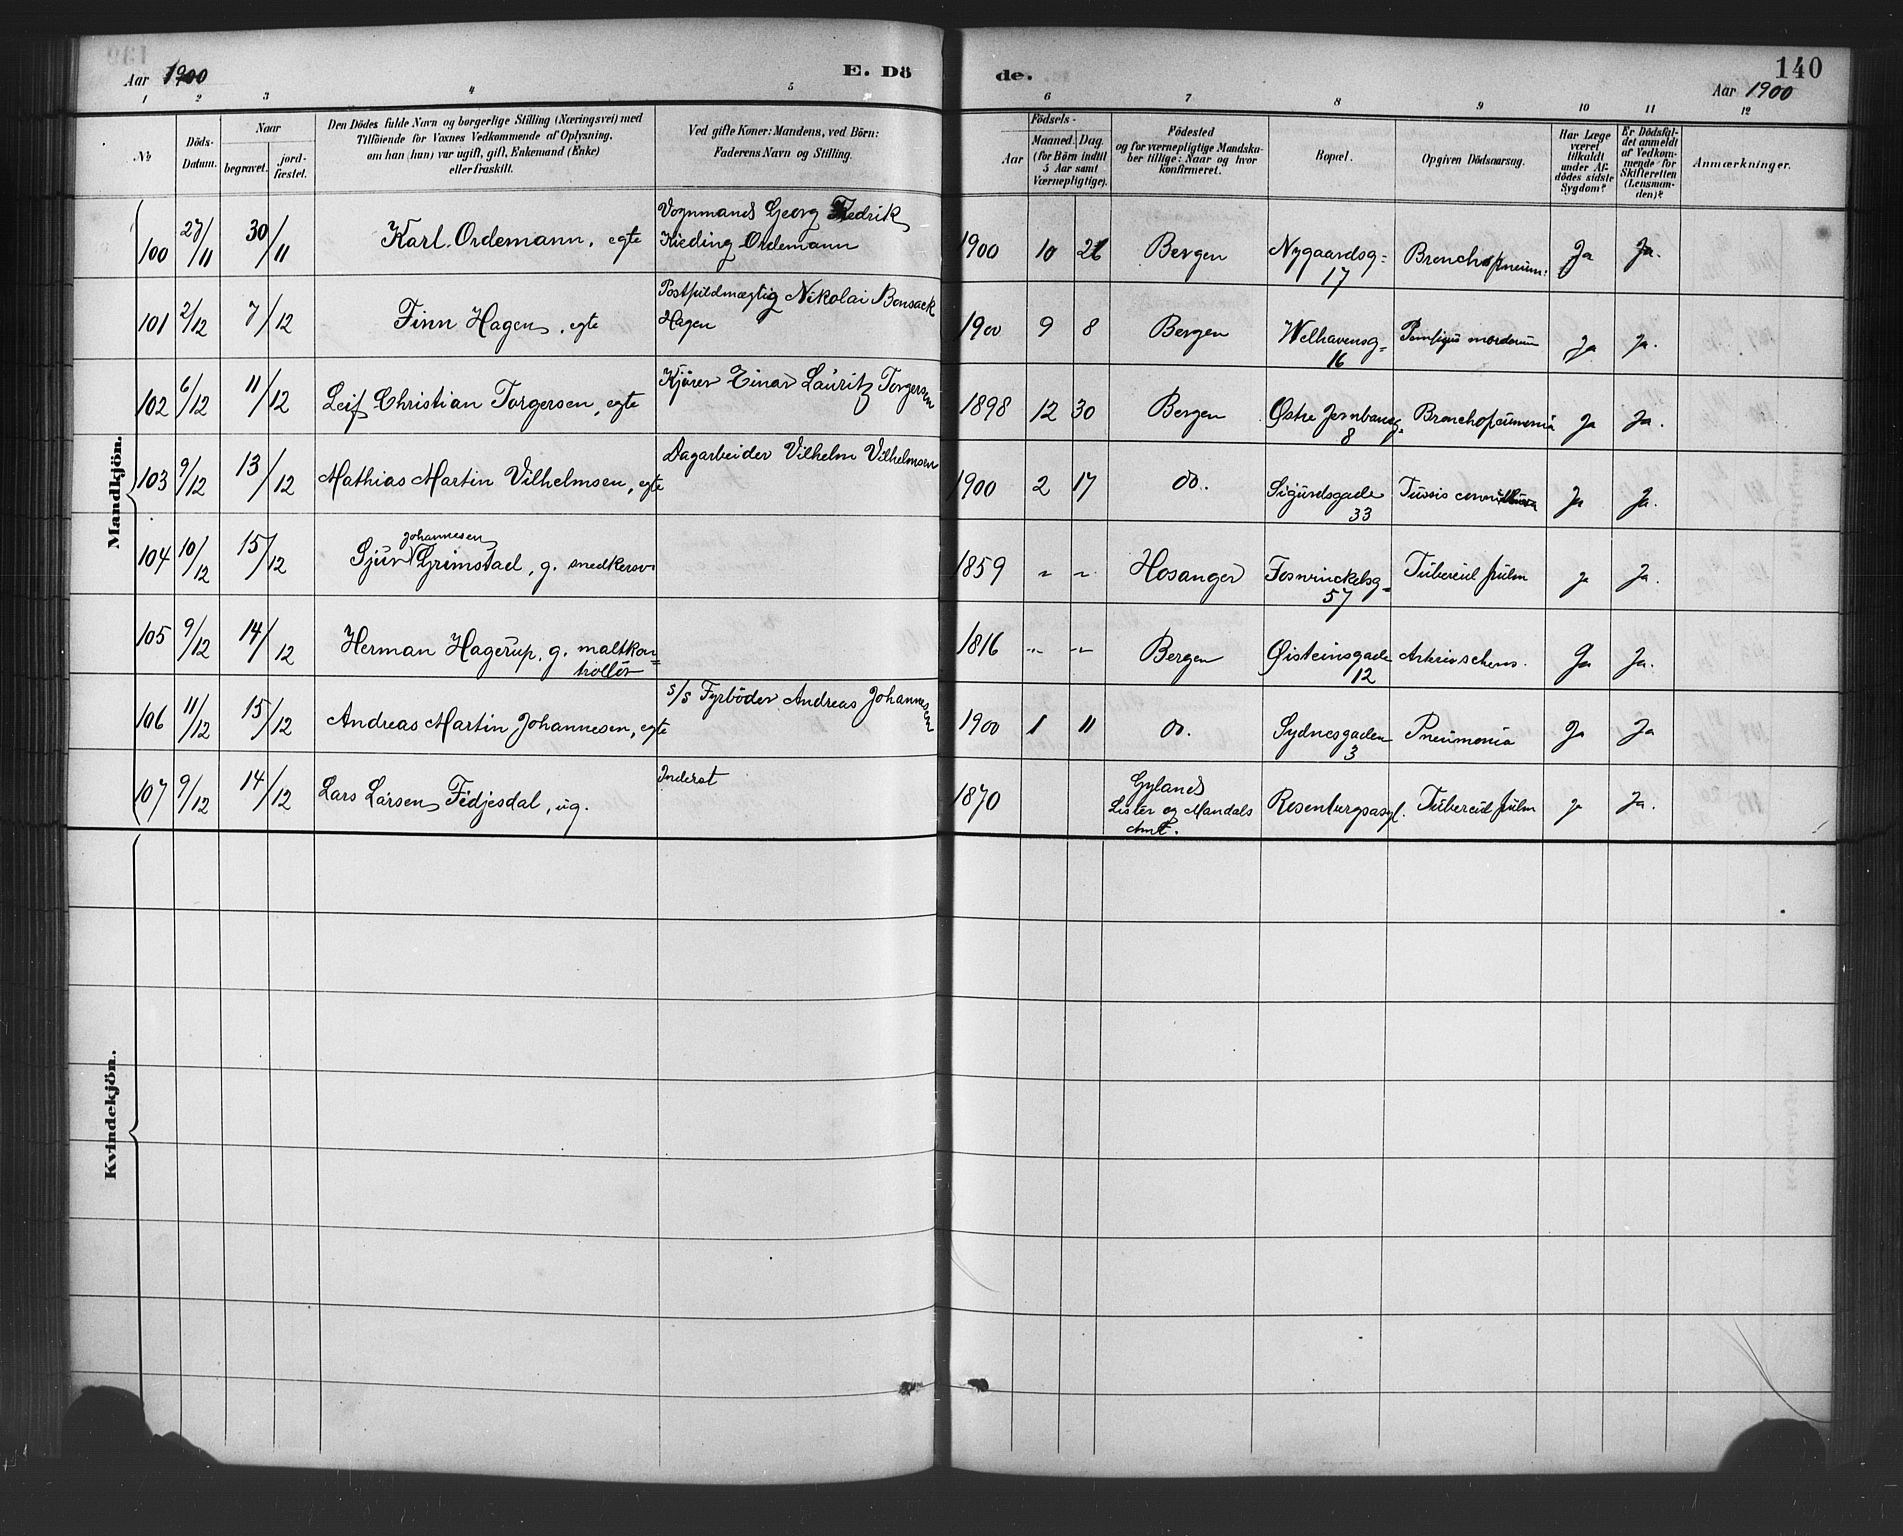 Aar 1900
E. Dö
de.
140
Aar 1900
1 2 3 4 5 6 7 8 9 10 11 12
№
Döds-Datum.
Naar
begravet.
jord-fæstet.
Den Dödes fulde Navn og borgerlige Stilling (Næringsvei) med
Tilföiende for Voxnes Vedkommende af Oplysning,
om han (hun) var ugift, gift, Enkemand (Enke)
eller fraskilt.
Ved gifte Koner: Mandens, ved Börn:
Faderens Navn og Stilling.
Födsels-
Aar
Maaned. Dag.
(for Börn indtil
5 Aar samt
Værnepligtige).
Födested
og for værnepligtige Mandska-
ber tillige: Naar og hvor
konfirmeret.
Bopæl.
Opgiven Dödsaarsag.
Har Læge
været
tilkaldt
under Af-
dödes sidste
Sygdom?
Er Dödsfal-
det anmeldt
af Vedkom-
mende for
Skifteretten
(Lensman-
den)?
Anmærkninger.
Mandkjön.
100 27/11 30/11 Karl Ordemann, egte Vognmand Georg Fredrik
Kieding Ordemann 1900 10 21 Bergen Nygaardsg= 17 Bronchopneum: Ja Ja.
101 2/12 7/12 Finn Hagen, egte Postfuldmægtig Nikolai Bonsack
Hagen 1900 9 8 Bergen Welhavensg= 16 Ja Ja.
102 6/12 11/12 Leif Christian Torgersen, egte Kjører Einar Lauritz Torgersen 1898 12 30 Bergen Østre Jernbaneg. 8 Bronchopeumonia Ja Ja.
103 9/12 13/12 Mathias Martin Vilhelmsen, egte Dagarbeider Vilhelm Vilhelmsen 1900 2 17 do. Sigurdsgade 33 Tussis Ja Ja.
104 10/12 15/12 Sjur Johannesen Grimstad, g. snedkersv. 1859 " " Hosanger Foswinckelsg= 57 Tubercul pulm Ja Ja.
105 9/12 14/12 Herman Hagerup, g. maltkon=
trollör 1816 " " Bergen Øisteinsgade 12 Ja Ja.
106 11/12 15/12 Andreas Martin Johannesen, egte s/s Fyrböder Andreas Johannesen 1900 1 11 do. Sydnesgaden 3 Pneumonia Ja Ja
107 9/12 14/12 Lars Larsen Fidjesdal, ug. Inderst 1870 Gyland
Lister og Mandals
Amt. Rosenbergsasyl. Tubercul pulm Ja Ja.
Kvindekjön.